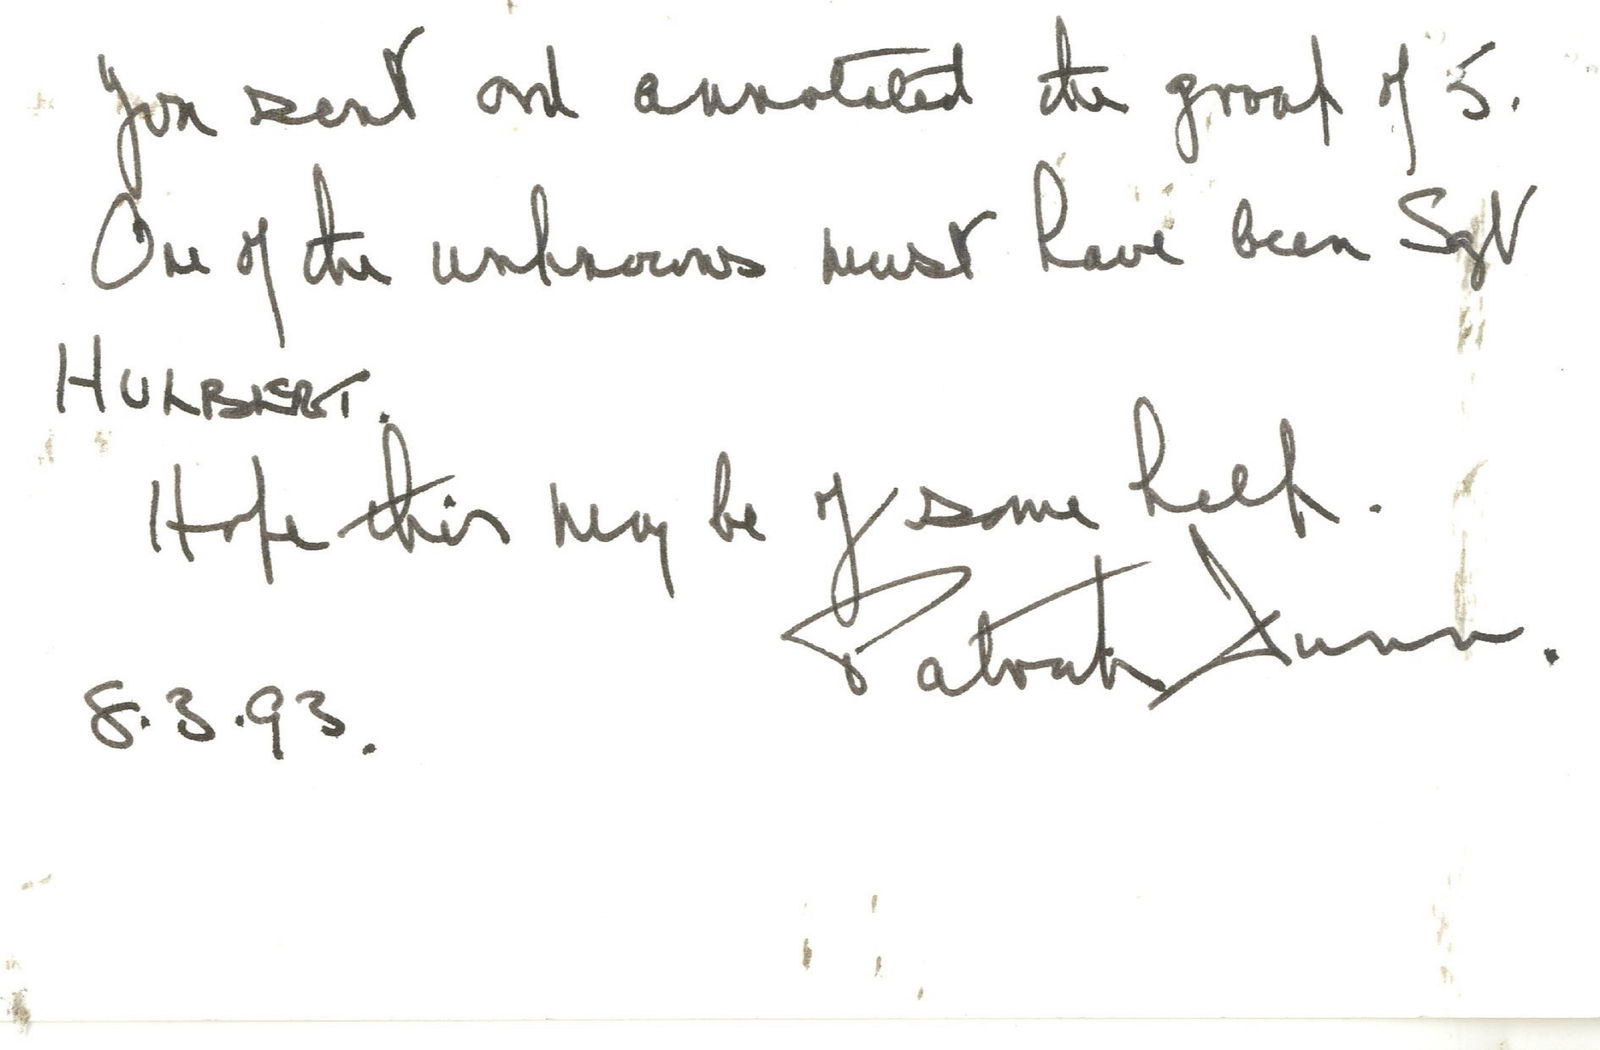 you sent and annotated the group of 5.
One of the unknowns must have been Sgt
HULBERT.
Hope this may be of some help.
Patrick Dunn.
8.3.93.